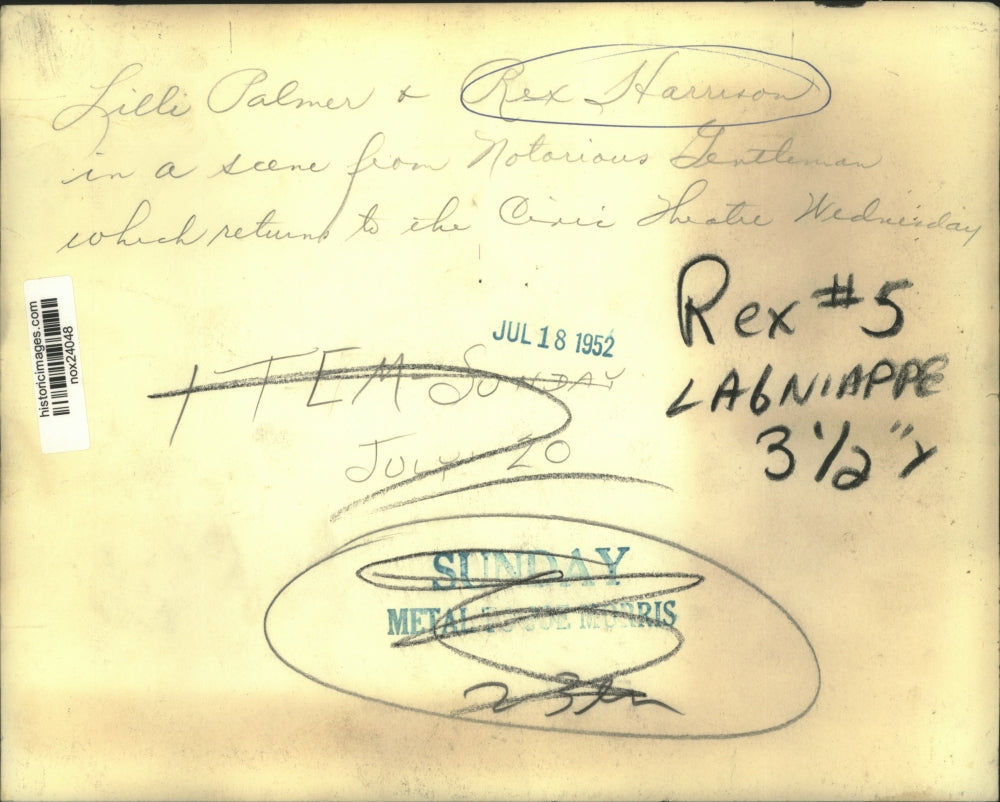 Lilli Palmer & Rex Harrison
in a scene from Notorious Gentleman
which returns to the Civic Theatre Wednesday
historicimages.com
nox24048
JUL 18 1952
Rex #5
LAGNIAPPE
3 1/2"
ITEM SUNDAY
JULY 20
SUNDAY
METAL TO JOE MORRIS